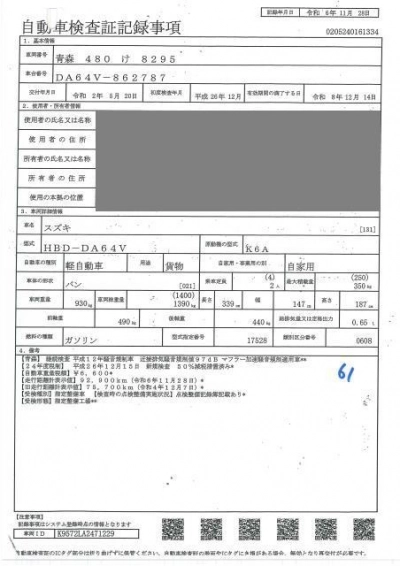 記録年月日 令和 6年11月28日
自動車検査証記録事項 0205240161334
1．基本情報
車両番号 青森 480 け 8295
車台番号 DA64V-862787
交付年月日 令和 2年 5月20日 初度検査年月 平成26年12月 有効期間の満了する日 令和 8年12月14日
2．使用者・所有者情報
使用者の氏名又は名称
使用者の住所
所有者の氏名又は名称
所有者の住所
使用の本拠の位置
3．車両詳細情報
車名 スズキ [131]
型式 HBD-DA64V 原動機の型式 K6A
自動車の種別 軽自動車 用途 貨物 自家用・事業用の別 自家用
車体の形状 バン [021] 乗車定員 (4) 2人 最大積載量 (250) 350kg
車両重量 930kg 車両総重量 (1400) 1390kg 長さ 339cm 幅 147cm 高さ 187cm
前軸重 490kg 後軸重 440kg 総排気量又は定格出力 0.65 L
燃料の種類 ガソリン 型式指定番号 17528 類別区分番号 0608
4．備考
【青森】 継続検査 平成12年騒音規制車 近接排気騒音規制値97dB マフラー加速騒音規制適用車**
【24年度税制】 平成26年12月15日 新規検査 50%減税措置済み*
【自動車重量税額】 ¥6,600*
【走行距離計表示値】 92,900km (令和6年11月28日)*
【旧走行距離計表示値】 75,700km (令和4年12月7日)*
【受検種別】 指定整備車 【検査時の点検整備実施状況】 点検整備記録簿記載あり*
【受検形態】 指定整備工場**
61
[注意事項]
記録事項はシステム登録時点の情報となります
車両ID K9572LA2471229